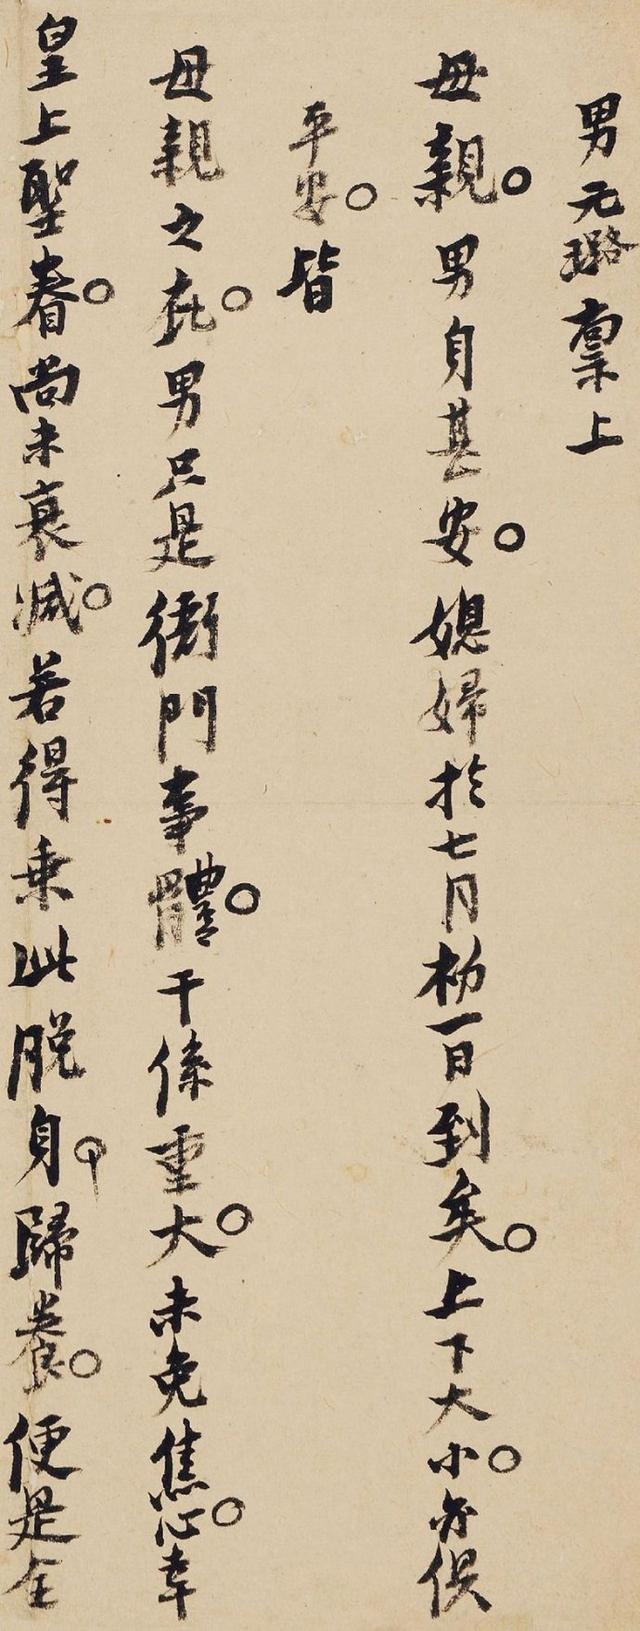 男元璐稟上
母親。男自甚安。媳婦於七月初一日到矣。上下大小。亦俱
平安。皆
母親之庇。男只是衙門事體。干係重大。未免焦心。幸
皇上聖眷。尚未衰減。若得乘此脫身。歸養。便是全